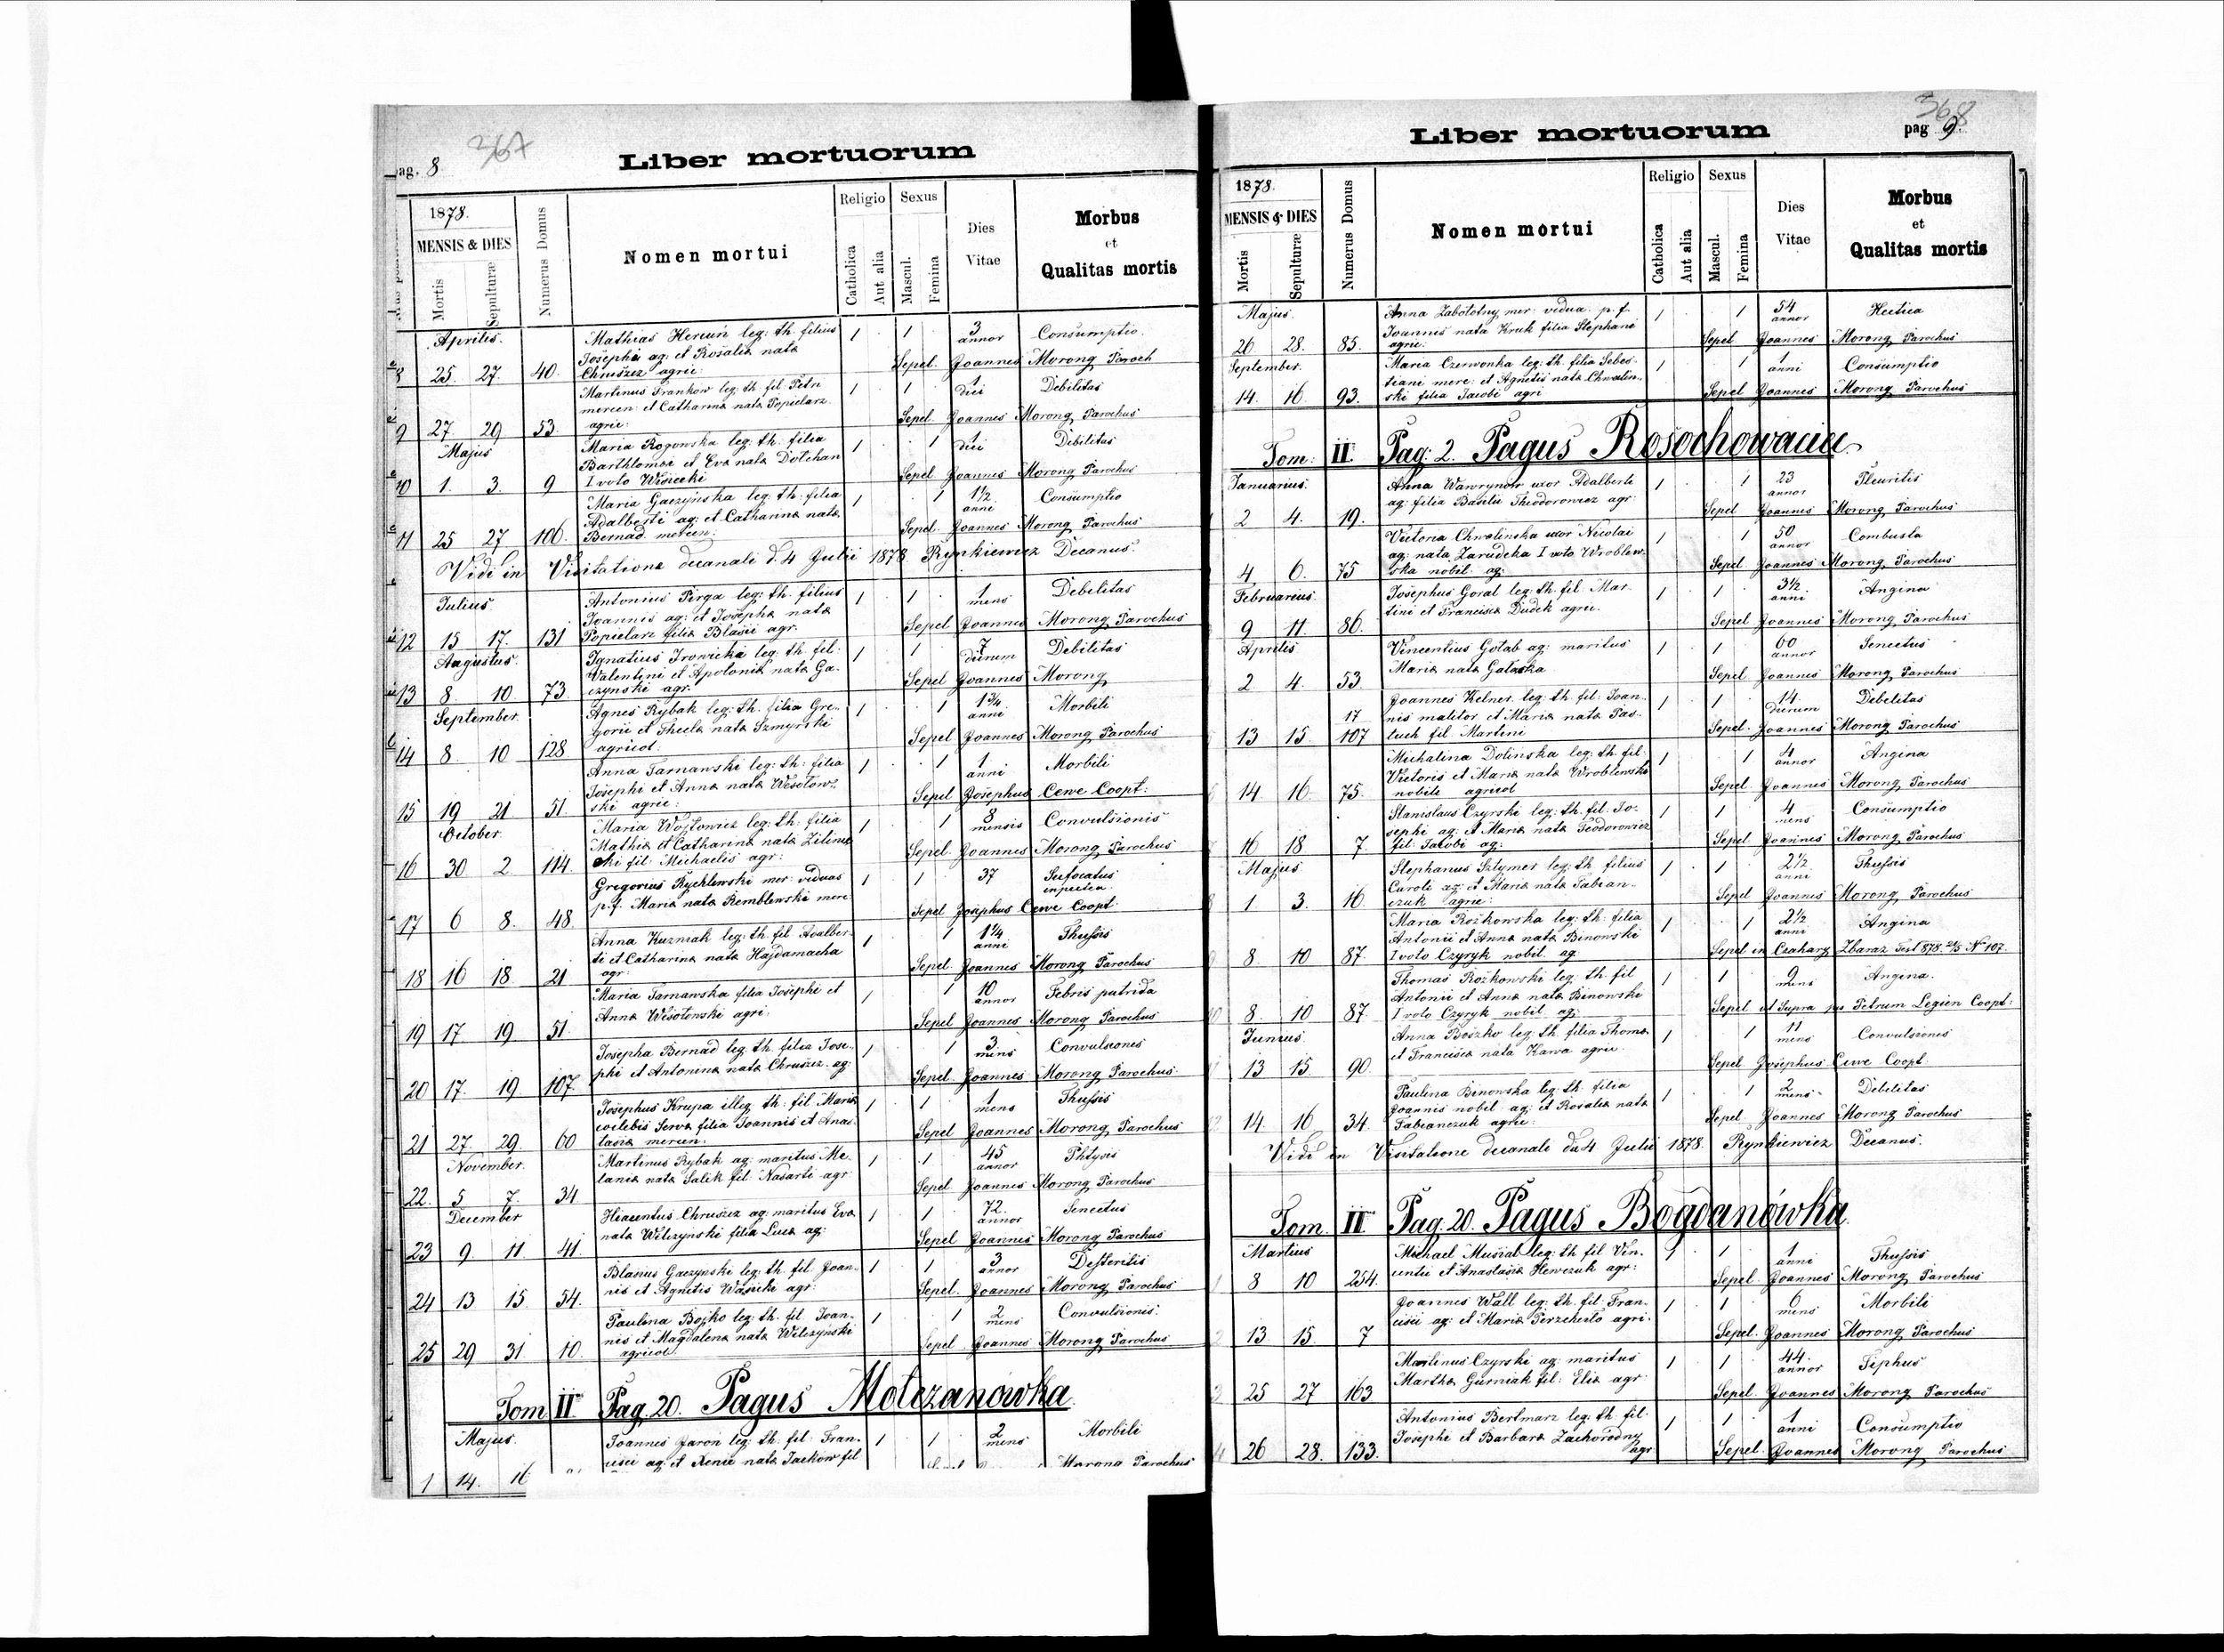 367
ag. 8
Liber mortuorum
1878.
MENSIS & DIES
Mortis
Sepulturæ
Numerus Domus
Nomen mortui
Religio
Catholica
Aut alia
Sexus
Mascul.
Femina
Dies Vitae
Morbus
et
Qualitas mortis
Aprilis. Mathias Hereun leg: th. filius 1 1 3 annor Consumptio
Josephi ag: et Rosalia nata
25 27 40. Chruszcz agric: Sepel. Joannes Morong Paroch
Martinus Frankow leg: th. fil. Petri 1 1 1 diei Debilitas
mercen: et Catharina nata Popielarz
9 27 29 53. agric: Sepel. Joannes Morong Parochus
Majus Maria Rogowska leg: th. filia 1 1 1 diei Debilitas
Barthlomei et Eva nata Dolchan
10 1. 3. 9 I voto Sepel Joannes Morong Parochus
Maria Gaczynska leg: th: filia 1 1 1½ anni Consumptio
Adalberti ag: et Catharina nata
11 25 27 106. Bernad mercen: Sepel. Joannes Morong Parochus
Vidi in Visitatione decanali d. 4 Julii 1878 Rynkiewicz Decanus.
Julius Antonius Pirga leg: th. filius 1 1 1 mens Debilitas
Joannis ag: et Josepha nata
12 15 17. 131 Popielarz filia Blasii agr. Sepel Joannes Morong Parochus
Augustus. Ignatius Irowicki leg: th. fil: 1 1 7 dierum Debilitas
Valentini et Apolonia nata Ga-
13 8 10. 73 czynski agr. Sepel Joannes Morong
September. Agnes Rybak leg: th. filia Gre- 1 1 1¾ anni Morbili
gorii et Thecla nata Szmyrski
14 8 10 128 agricol: Sepel Joannes Morong Parochus
Anna Tarnawski leg: th: filia 1 1 1 anni Morbili
Josephi et Anna nata Wesołow-
15 19 21 51. ski agric: Sepel Josephus Cewe Coopt:
October. Maria Wojtowicz leg: th: filia 1 1 8 mensis Convulsionis
Mathia et Catharina nata
16 30 2 114 ski fil: Michaelis agr: Sepel. Joannes Morong Parochus
Gregorius Rychlewski mer: viduus 1 1 37 Sufocatus
p. f. Maria nata Remblewski merc
17 6 8. 48. Sepel Josephus Cewe Coopt
Anna Kuzniak leg: th. fil Adalber- 1 1 1¼ anni Thussis
ti et Catharina nata Hajdamacha
18 16 18 21 agr: Sepel. Joannes Morong Parochus
Maria Tarnawska filia Josephi et 1 1 10 annor Febris putrida
Anna Wesołowski agri:
19 17. 19. 51. Sepel Joannes Morong Parochus
Josepha Bernad leg: th. filia Jose- 1 1 3 mens Convulsiones
phi et Antonina nata Chruszcz. ag:
20 17. 19. 107. Sepel. Joannes Morong Parochus
Josephus Krupa illeg: th: fil. Maria 1 1 1 mens Thussis
coelebis serva filia Joannis et Anas-
21 27. 29. 60 tasia mercen. Sepel Joannes Morong Parochus
November. Martinus Rybak ag: maritus Me- 1 1 45 annor Phtysis
lania nata Salik fil: Nasarti agr
22. 5 7. 34 Sepel Joannes Morong Parochus
December Hiacentus Chruszcz ag: maritus Eva 1 1 72. annor Senectus
nata Wilczynski filia Luca ag:
23 9. 11. 41. Sepel Joannes Morong Parochus
Blasius Gaczynski leg: th. fil Joan- 1 1 3 annor
nis et Agnetis Wasicki agr:
24 13 15 54. Sepel. Joannes Morong Parochus
Paulina Bojko leg: th. fil Joan- 1 1 2 mens Convulsionis.
nis et Magdalena nata Wilczynski
25 29 31 10. agricol. Sepel Joannes Morong Parochus
Tom II Pag. 20. Pagus Mołczanowka.
Majus. Joannes Jaron leg: th: fil: Fran- 1 1 2 mens Morbili
cisci ag: et Xenia nata Jackow fil
1 14. 16 Morong Parochus
368
pag 9.
Liber mortuorum
1878.
MENSIS & DIES
Mortis
Sepulturæ
Numerus Domus
Nomen mortui
Religio
Catholica
Aut alia
Sexus
Mascul.
Femina
Dies Vitae
Morbus
et
Qualitas mortis
Majus. Anna Zabołotny mer: vidua p. f. 1 1 54 annor Hectica
Joannis nata Kruk filia Stephani
26 28. 85. agric: Sepel Joannes Morong Parochus
September. Maria Czerwonka leg: th. filia Sebes- 1 1 1 anni Consumptio
tiani merc: et Agnetis nata Chwalin-
14. 16 93. ski filia Jacobi agri Sepel Joannes Morong Parochus
Tom: II. Pag: 2. Pagus Rosochowaciec
Januarius. Anna Wawrynow uxor Adalberti 1 1 23 annor Pleuritis
ag: filia Basilii Theodorowicz agr:
2 4. 19. Sepel Joannes Morong Parochus
Victoria Chwalinska uxor Nicolai 1 1 50 annor Combusta
ag: nata Zarudcka I voto Wroblew-
4 6. 75 ska nobil. ag: Sepel Joannes Morong Parochus
Februarius. Josephus Goral leg: th. fil. Mar- 1 1 3½ anni Angina
tini et Francisca Dudek agric.
9 11. 86. Sepel Joannes Morong Parochus
Aprilis Vincentius Gołab ag: maritus 1 1 60 annor Senectus
Maria nata Gałaska
2 4. 53 Sepel Joannes Morong Parochus
Joannes Kelner leg: th. fil: Joan- 1 1 14 dierum Debilitas
17 nis molitor et Maria nata Pas-
13 15. 107 tuch fil Martini Sepel. Joannes Morong Parochus
Michalina Dolinska leg: th. fil. 1 1 4 annor Angina
Victoris et Maria nata Wroblewski
14. 16. 75. nobile agricol Sepel Joannes Morong Parochus
Stanislaus Czyrski leg: th. fil. Jo- 1 1 4 mens Consumptio
sephi ag: et Maria nata Teodorowicz
16 18 7 fil: Jacobi ag: Sepel Joannes Morong Parochus
Majus Stephanus Sztymer leg: th filius 1 1 2½ anni Thussis
Caroli ag: et Maria nata Fabian-
1 3. 16. czuk agric: Sepel Joannes Morong Parochus
Maria Rożkowska leg: th. filia 1 1 2½ anni Angina
Antonii et Anna nata Binowski
8. 10 87. I voto Czyryk nobil. ag. Sepel in Czahary Zbaraz Test 878. 24/5 No 107.
Thomas Rożkowski leg: th. fil 1 1 9 mens Angina.
Antonii et Anna nata Binowski
8. 10 87. I voto Czyryk nobil. ag: Sepel ut Supra per Petrum Legien Coopt:
Junius. Anna Boszko leg: th. filia Thoma 1 1 11 mens Convulsiones
et Francisca nata Kawa agric.
13 15. 90. Sepel Josephus Cewe Coopt
Paulina Binowska leg: th. filia 1 1 2 mens Debilitas
Joannis nobil. ag: et Rosalia nata
14. 16 34. Fabianczuk agric: Sepel Joannes Morong Parochus
Vidi in Visitatione decanali du 4 Julii 1878. Rynkiewicz Decanus.
Tom. II Pag. 20. Pagus Bogdanówka.
Martius Michael Musiał leg: th fil Vin- 1 1 1 anni Thussis
centii et Anastasia Hewczuk agr:
8 10 254. Sepel. Joannes Morong Parochus
Joannes Wall leg: th. fil: Fran- 1 1 6 mens Morbili
cisci ag: et Maria Perzchesto agri.
13 15. 7 Sepel. Joannes Morong Parochus
Martinus Czyrski ag: maritus 1 1 44. annor Tiphus
Martha Gurniak fil: Elia agr:
25 27 163 Sepel. Joannes Morong Parochus
Antonius Bertmarz leg: th: fil. 1 1 1 anni Consumptio
Josephi et Barbara Zachorodny
26 28. 133. agr: Sepel. Joannes Morong Parochus